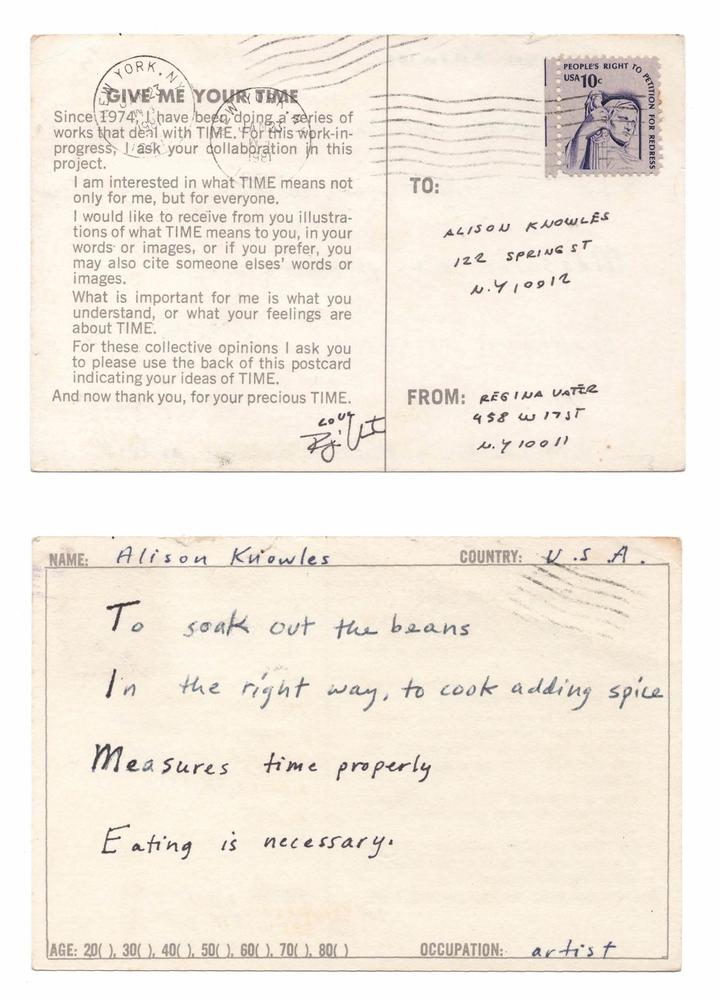 NEW YORK, N.Y.
1981
PEOPLE'S RIGHT TO PETITION FOR REDRESS
USA 10c
GIVE ME YOUR TIME
Since 1974, I have been doing a series of
works that deal with TIME. For this work-in-
progress, I ask your collaboration in this
project.
I am interested in what TIME means not
only for me, but for everyone.
I would like to receive from you illustra-
tions of what TIME means to you, in your
words or images, or if you prefer, you
may also cite someone elses' words or
images.
What is important for me is what you
understand, or what your feelings are
about TIME.
For these collective opinions I ask you
to please use the back of this postcard
indicating your ideas of TIME.
And now thank you, for your precious TIME.
LOVE
TO:
ALISON KNOWLES
122 SPRING ST
N.Y 10012
FROM: REGINA VATER
458 W 17 ST
N.Y 10011
NAME: Alison Knowles COUNTRY: U.S.A.
To soak out the beans
In the right way, to cook adding spice
Measures time properly
Eating is necessary.
AGE: 20( ), 30( ), 40( ), 50( ), 60( ), 70( ), 80( ) OCCUPATION: artist